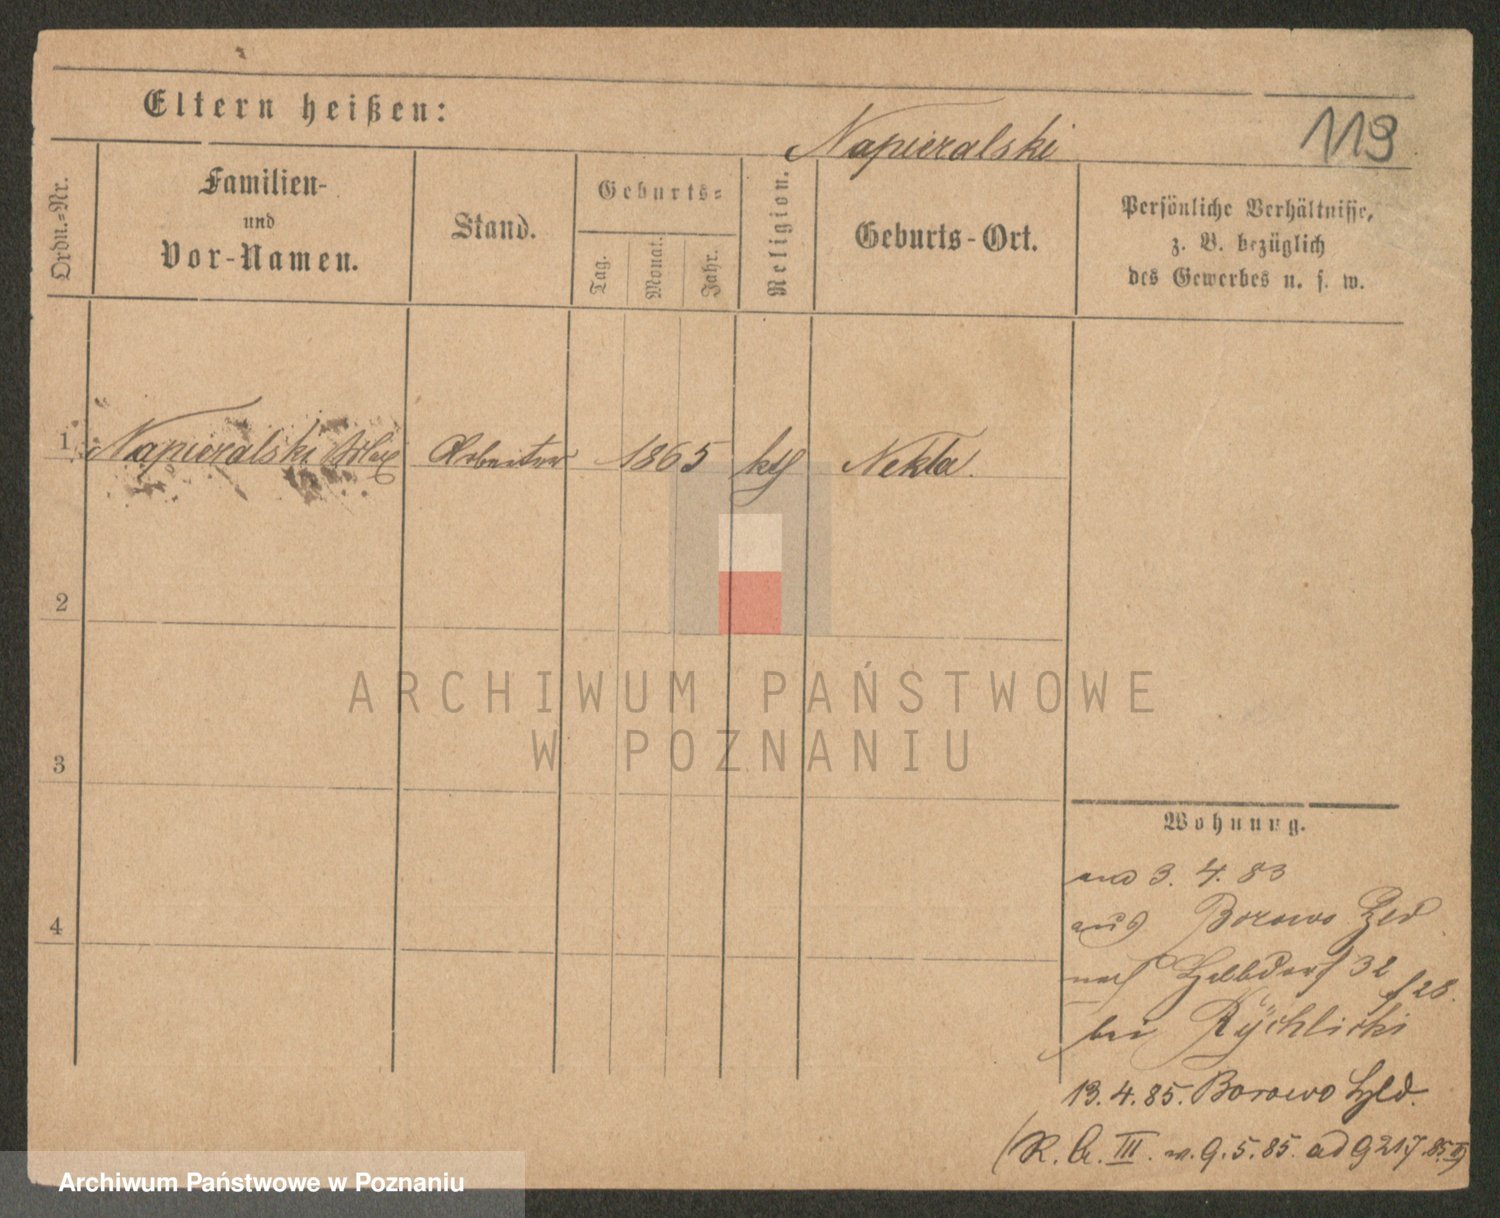 Eltern heißen:
Napieralski
119
Ordn.-Nr.
Familien-
und
Vor-Namen.
Stand.
Geburts-
Tag.
Monat.
Jahr.
Religion.
Geburts-Ort.
Persönliche Verhältnisse,
z. B. bezüglich
des Gewerbes u. s. w.
1 Napieralski Arbeiter 1865 kth Nekla
2
3
4
ARCHIWUM PAŃSTWOWE
W POZNANIU
Wohnung.
3. 4. 83
aus Borowo Hld
nach 32
f 28.
bei Rychlicki
13. 4. 85. Borowo Hld.
(R. A. III. v. 9. 5. 85. ad 9217.85.II)
Archiwum Państwowe w Poznaniu